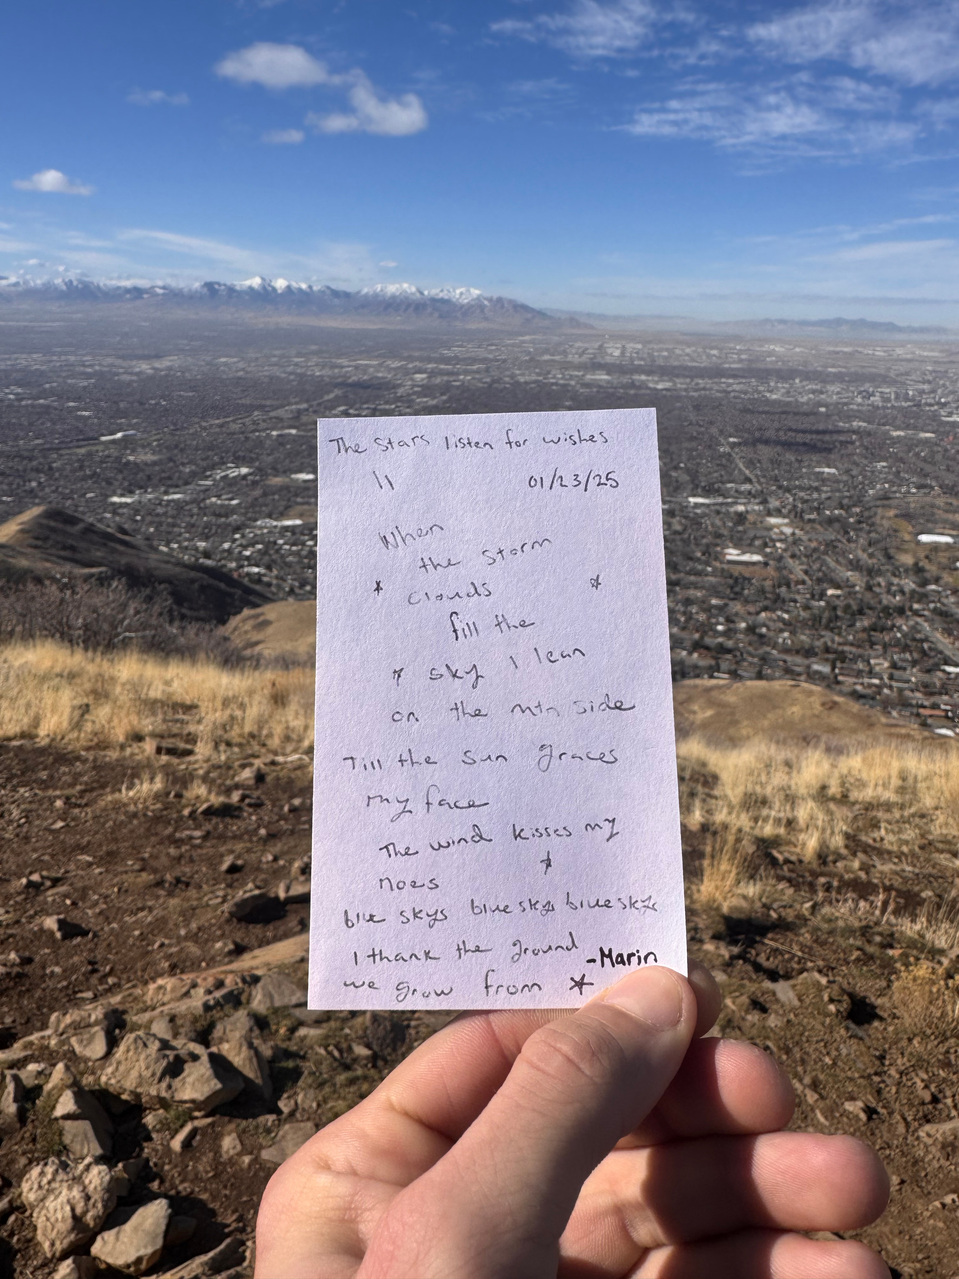 The Stars listen for wishes
11 01/23/25
When
the storm
* clouds *
fill the
* sky I lean
on the mtn side
Till the sun graces
my face
The wind kisses my
noes *
blue skys blue skys blue skys
I thank the ground
-Marin
we grow from *